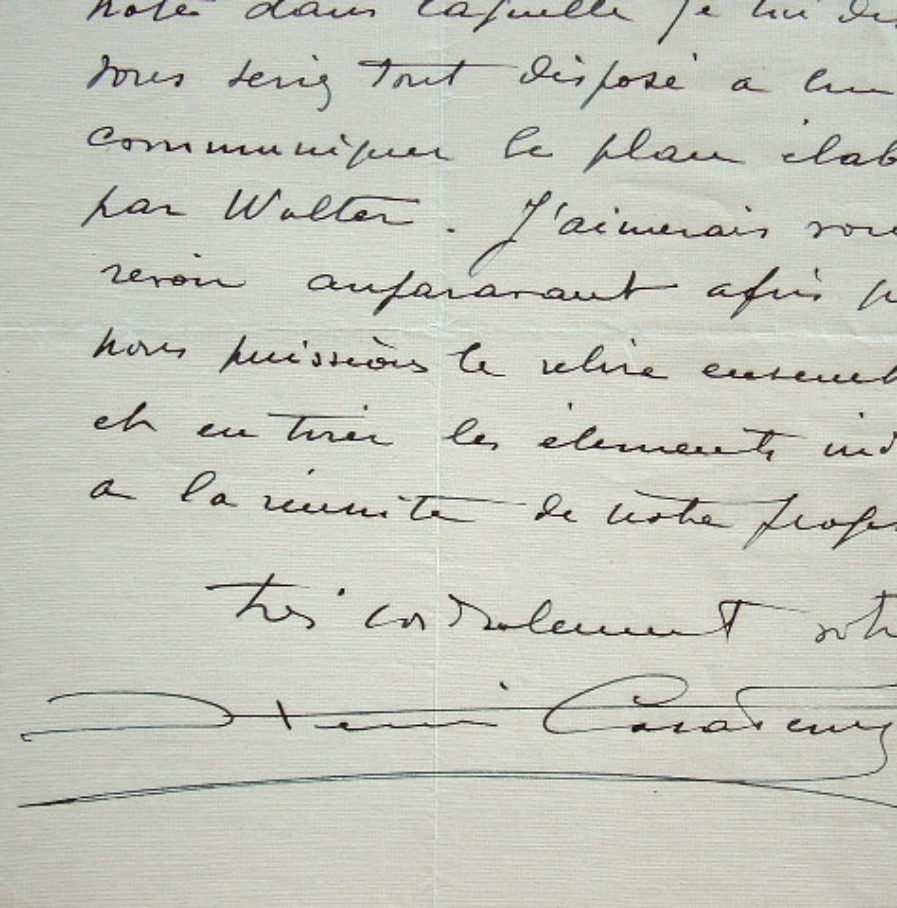 note dans laquelle je lui dis
vous seriez tout disposé a lui
communiquer le plan élab
par Walter. J'aimerais vous
revoir auparavant afin q
nous puissions le relire ensemb
et en tirer les éléments ind
a la réussite de notre projet
très cordialement votr
Henri